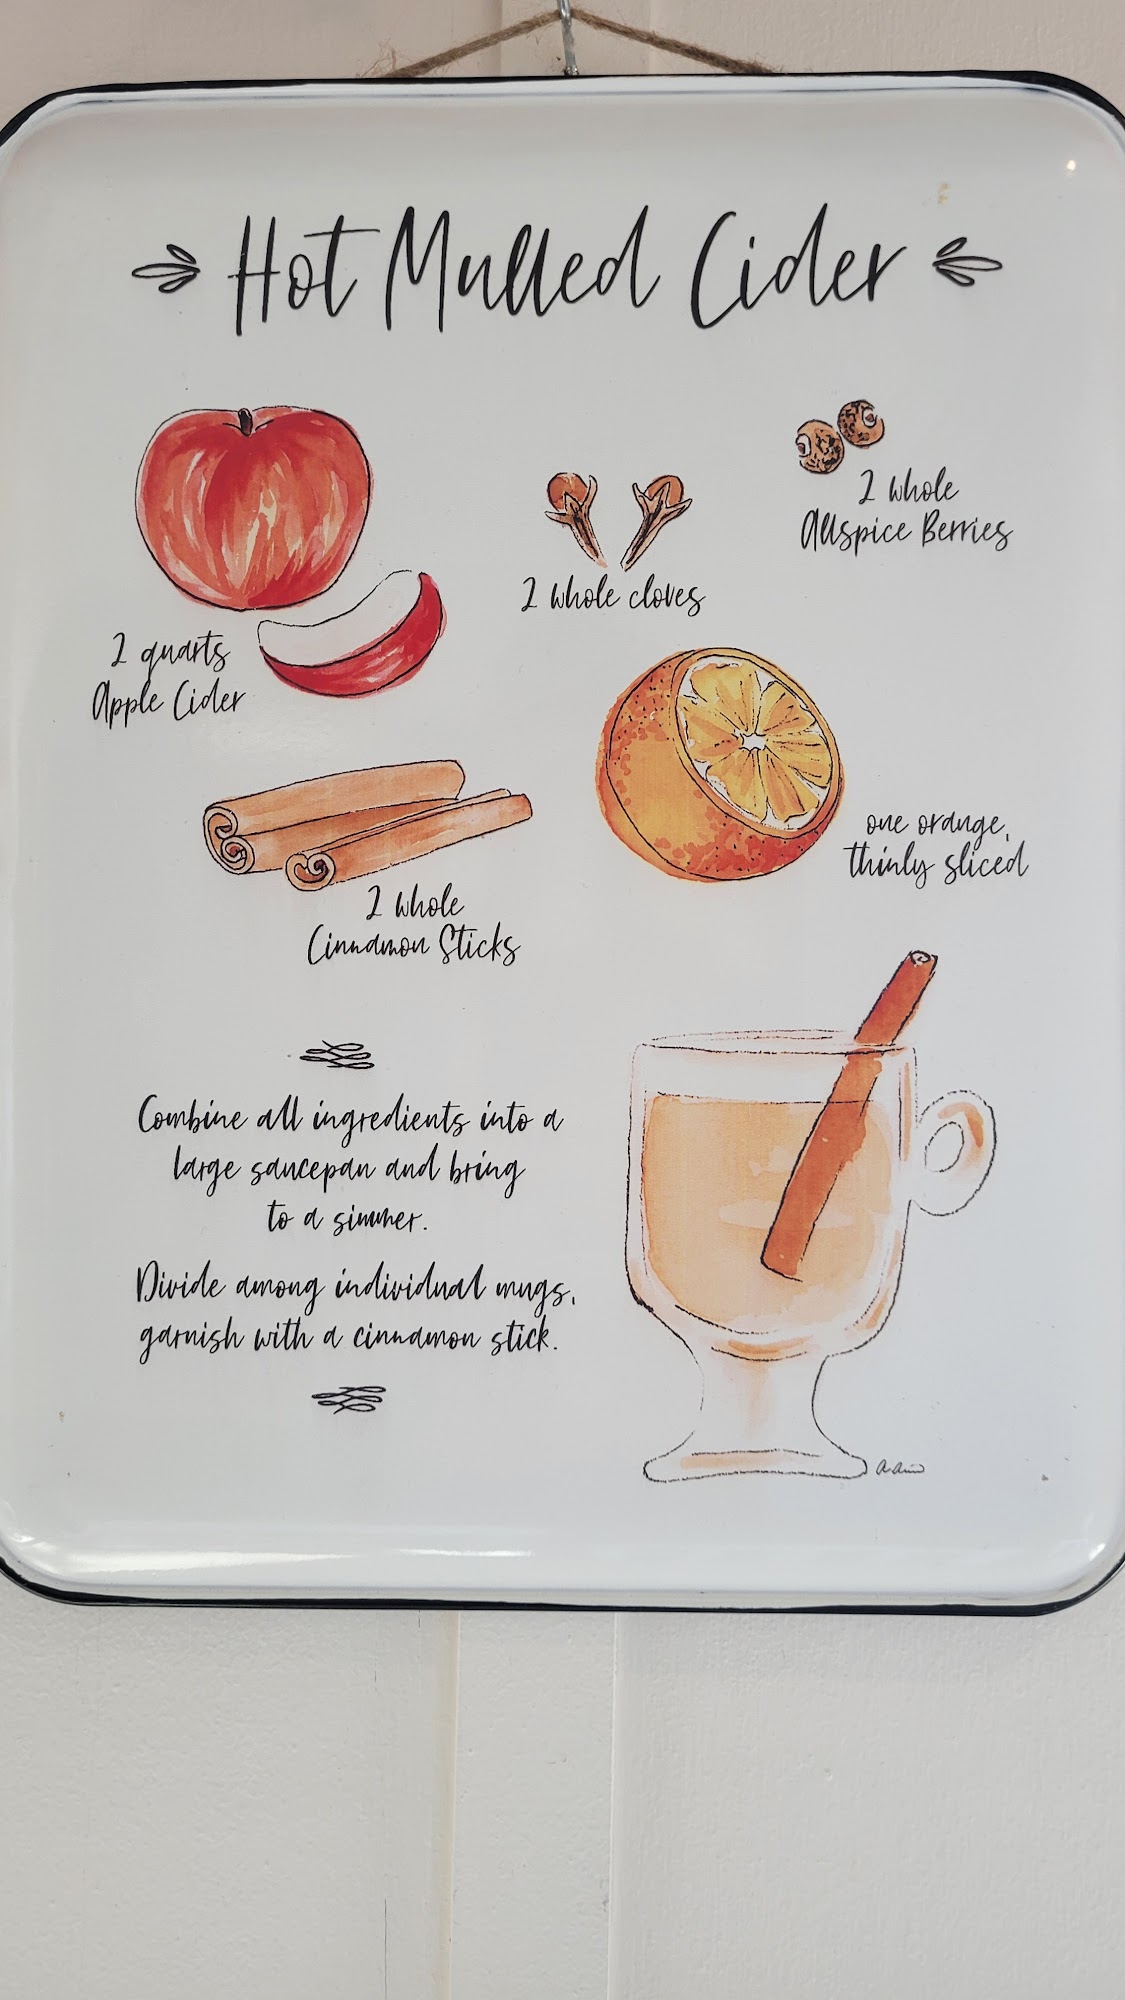 Hot Mulled Cider
2 whole
Allspice Berries
2 whole cloves
2 quarts
Apple Cider
one orange,
thinly sliced
2 whole
Cinnamon Sticks
Combine all ingredients into a
large saucepan and bring
to a simmer.
Divide among individual mugs,
garnish with a cinnamon stick.